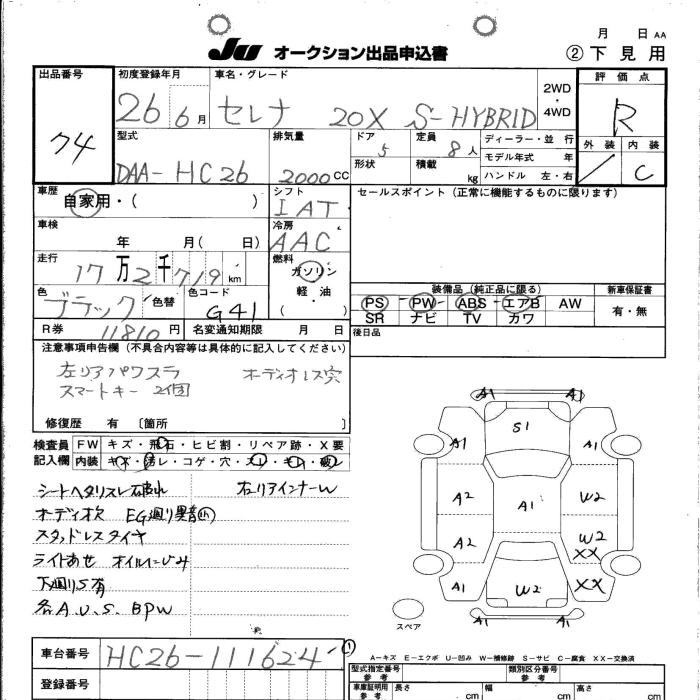 月 日 AA
JU オークション出品申込書 ②下見用
出品番号 初度登録年月 車名・グレード 2WD・4WD 評価点
74 26 6月 セレナ 20X S-HYBRID R
型式 排気量 ドア 定員 ディーラー・並行 外装 内装
DAA-HC26 2000cc 5 8人 モデル年式 年 / C
形状 積載 kg ハンドル 左・右
車歴 自家用・( ) シフト IAT セールスポイント(正常に機能するものに限ります)
車検 年 月( 日) 冷房 AAC
走行 17万2千719km 燃料 ガソリン 軽・油 ( )
装備品(純正品に限る) 新車保証書
色 ブラック 色替 色コード G41 PS PW ABS エアB AW 有・無
SR ナビ TV カワ
R券 11810円 名変通知期限 月 日 後日品
注意事項申告欄(不具合内容等は具体的に記入してください)
左リアパワスラ オーディオレス穴
スマートキー 2個
修復歴 有 〔箇所 〕
検査員記入欄 FW キズ・飛石・ヒビ割・リペア跡・X要
内装 キズ・汚レ・コゲ・穴・スレ・キレ・破レ
シートヘタリスレ破れ 右リアインナーW
オーディオ欠 EG廻り異音
スタッドレスタイヤ
ライトあせ オイルにじみ
下廻りS有
各A.U.S. BPW
A1 A1
S1
A1 A1
A2 A1 W2
A2 W2 XX
A1 W2 XX
A1 A1
スペア
車台番号 HC26-111624 ①
A-キズ E-エクボ U-凹み W-補修跡 S-サビ C-腐食 XX-交換済
登録番号
型式指定番号 参考 類別区分番号 参考
車庫証明用 参考 長さ cm 幅 cm 高さ cm